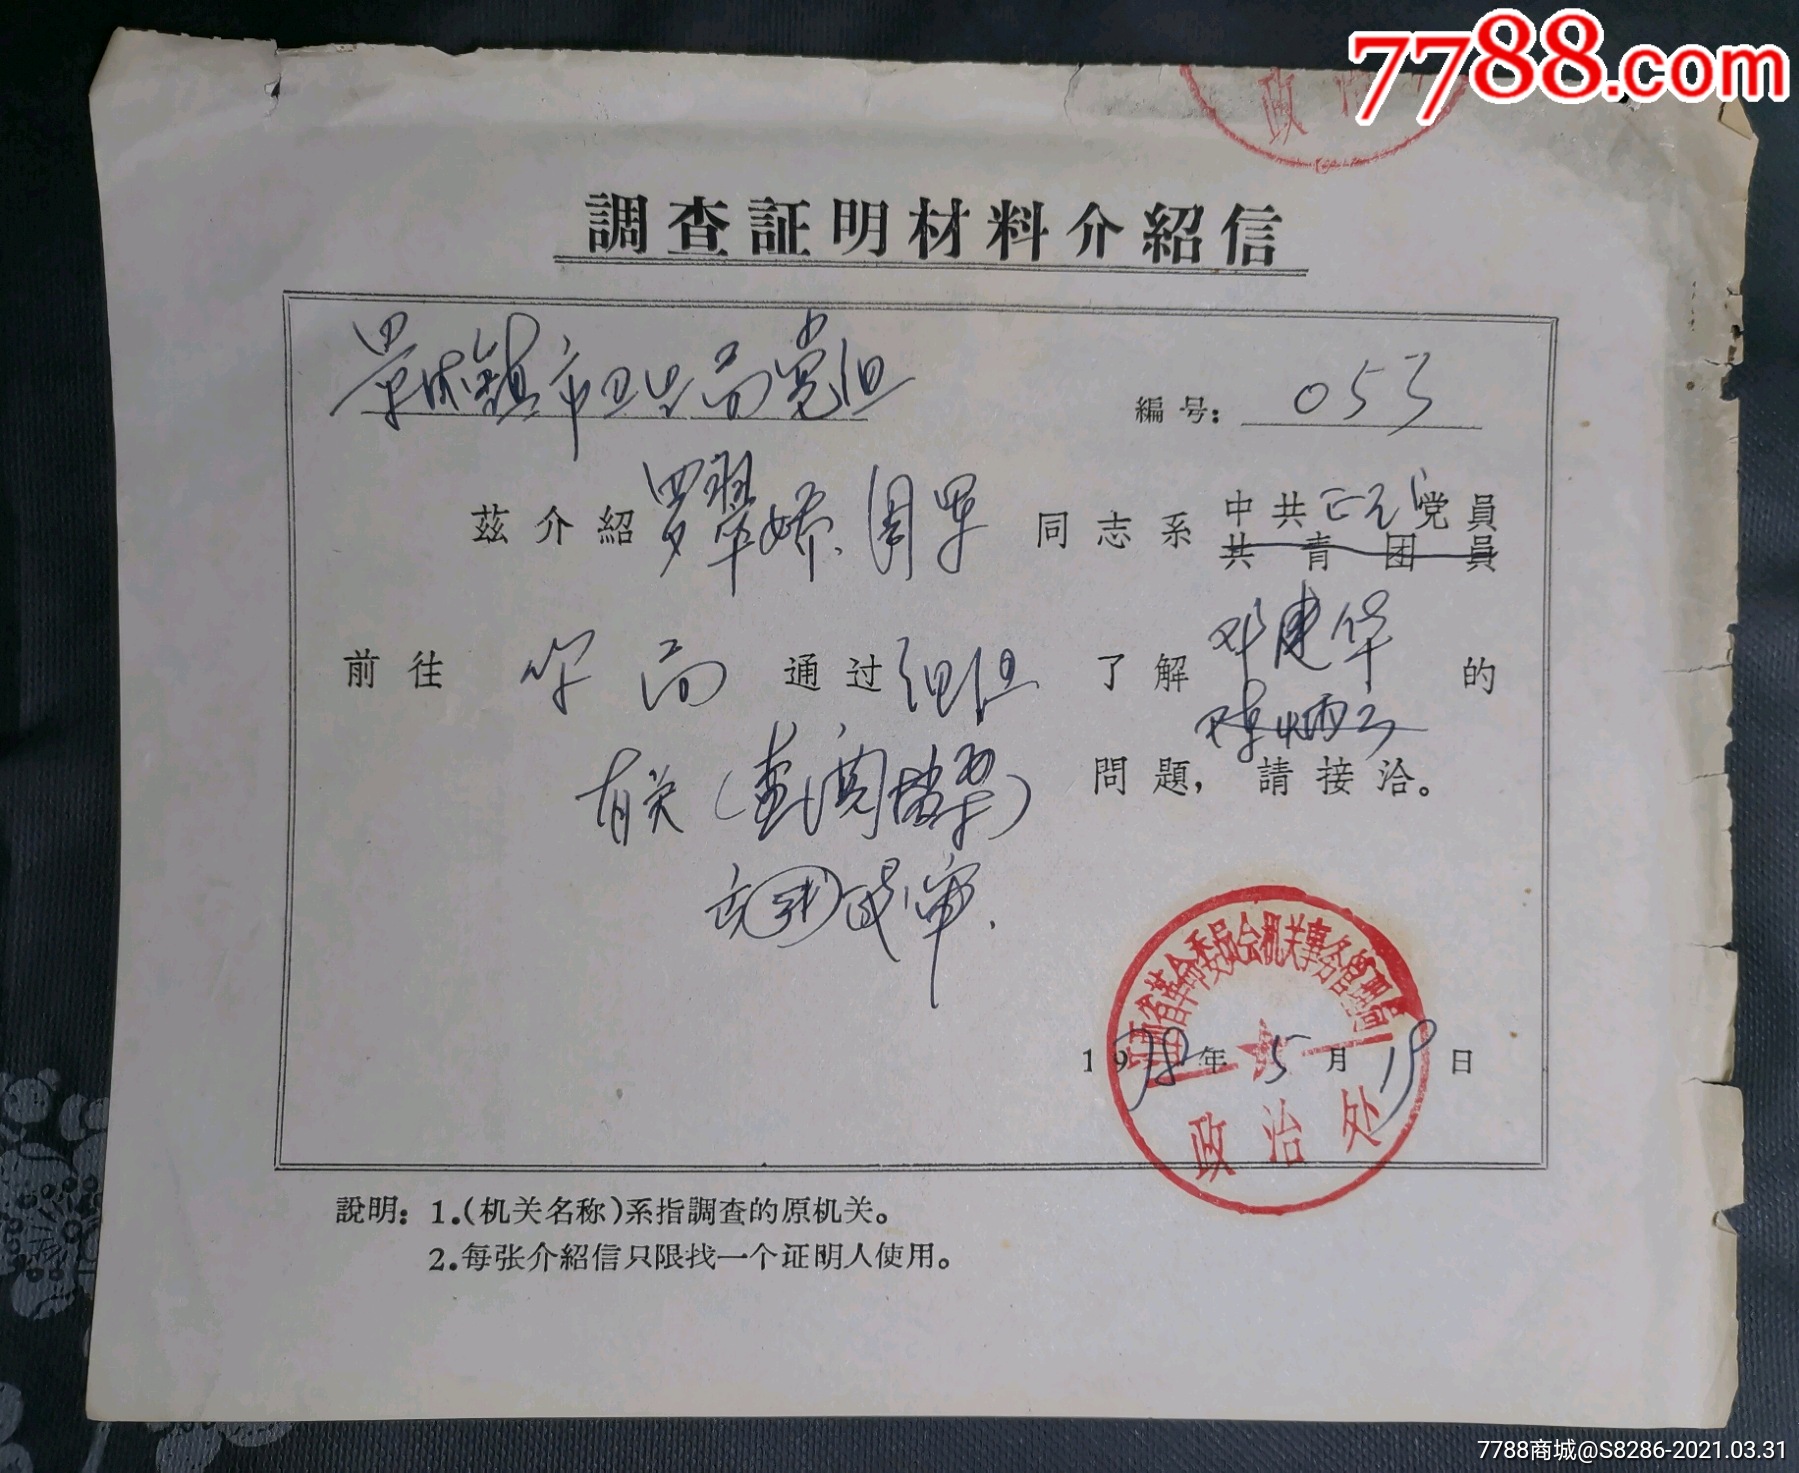 7788.com
政治
調查証明材料介紹信
景德镇市卫生局党组
編号: 053
茲介紹 罗翠娇、周军 同志系 中共正式党員
共青团員
前往 你局 通过 组织 了解 邓建华 的
陈炳云
有关(查阅档案) 問題,請接洽。
江西省革命委员会机关事务管理局
1978年5月19日
政治处
說明: 1.(机关名称)系指調査的原机关。
2.每张介紹信只限找一个证明人使用。
7788商城@S8286-2021.03.31